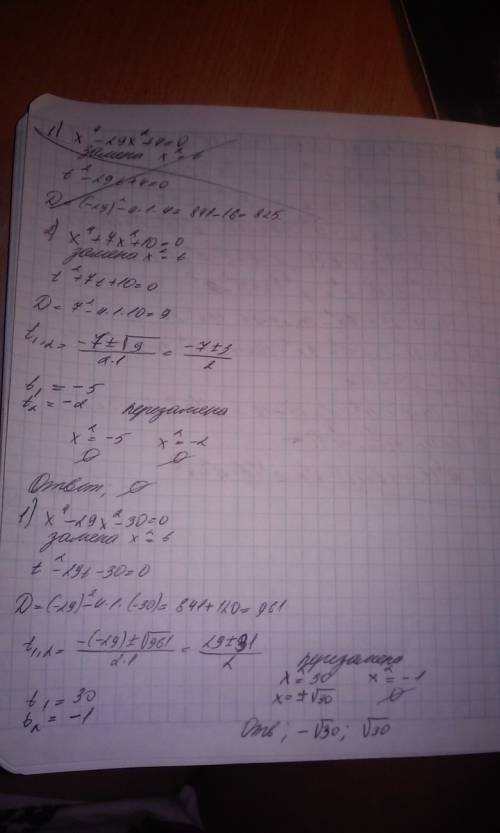 1) x⁴-29x²+4=0
замена x²=t
t²-29t+4=0
D=(-29)²-4·1·4=841-16=825
2) x⁴+7x²+10=0
замена x²=t
t²+7t+10=0
D=7²-4·1·10=9
t₁,₂=(-7±√9)/(2·1)=(-7±3)/2
t₁=-5
t₂=-2 перезамена
x²=-5 x²=-2
∅ ∅
Ответ, ∅
1) x⁴-29x²-30=0
замена x²=t
t²-29t-30=0
D=(-29)²-4·1·(-30)=841+120=961
t₁,₂=(-(-29)±√961)/(2·1)=(29±31)/2
перезамена
t₁=30 x²=30 x²=-1
t₂=-1 x=±√30 ∅
Отв; -√30; √30